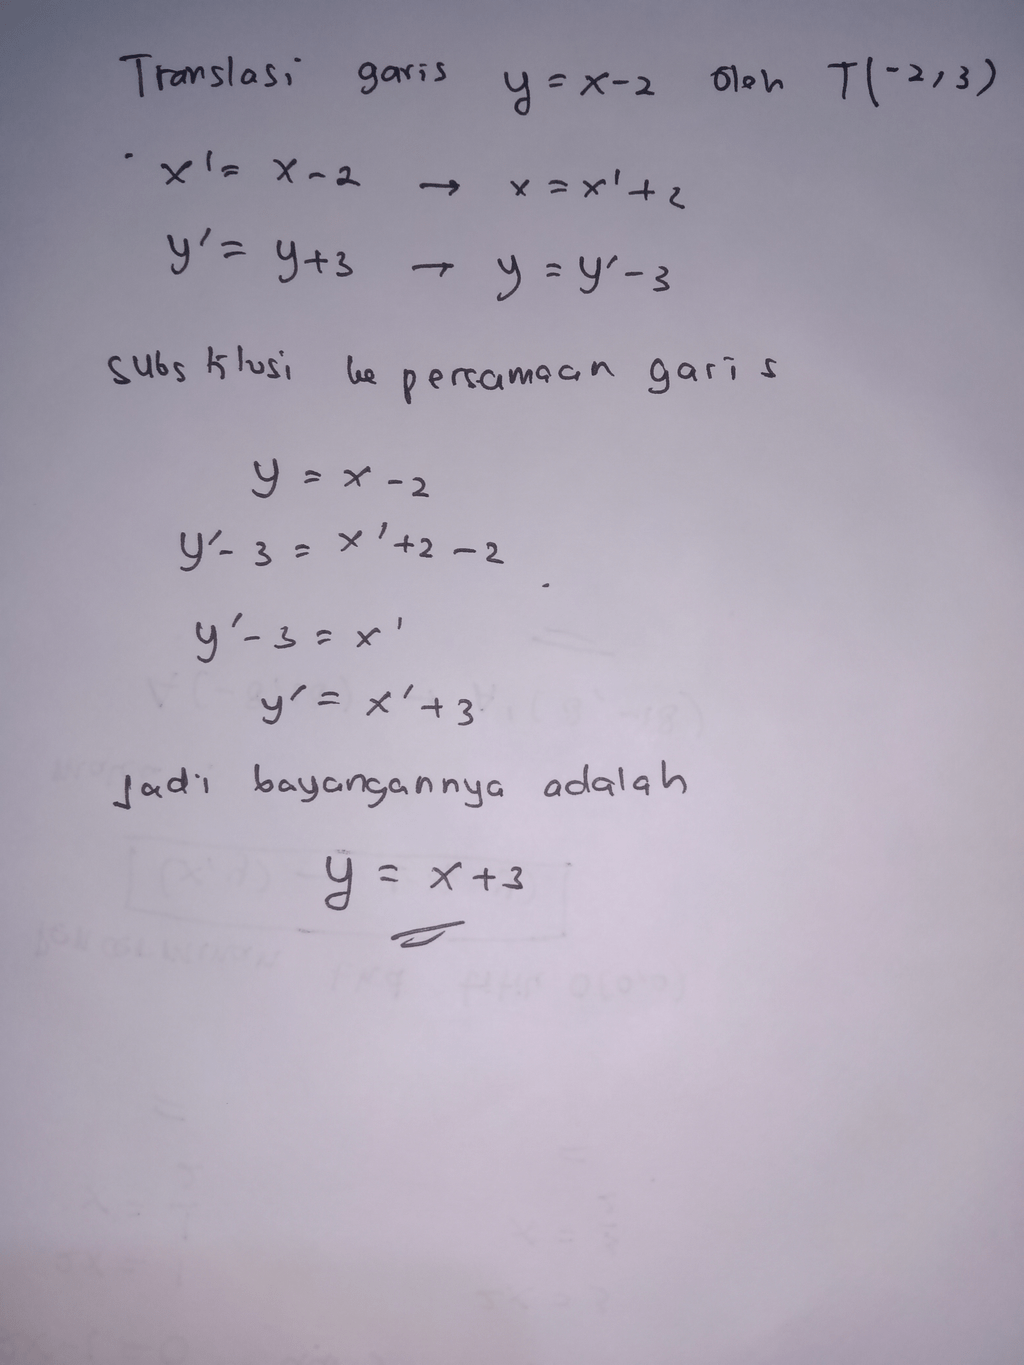 Translasi garis y = x-2 oleh T(-2,3)
x' = x-2 → x = x'+2
y' = y+3 → y = y'-3
ke persamaan garis
y = x-2
y'-3 = x'+2-2
y'-3 = x'
y' = x'+3
Jadi bayangannya adalah
y = x+3